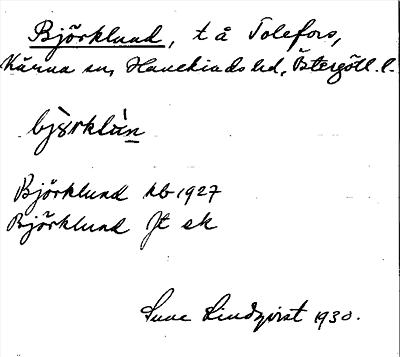 Björklund, t å Tolefors,
Kärna sn, Hanekinds hd, Östergötl. l.
björklùn
Björklund kb 1927
Björklund Jt ek
Sune Lindqvist 1930.